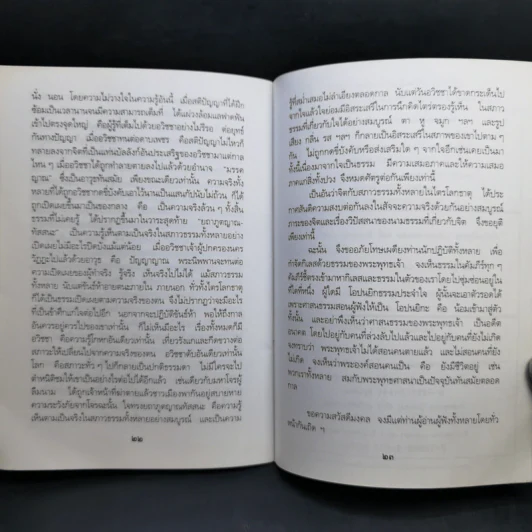 นั่ง นอน โดยความไม่วางใจในความรู้อันนี้ เมื่อสติปัญญาที่ได้ฝึก
ซ้อมเป็นเวลานานจนมีความสามารถเต็มที่ ได้แผ่วงล้อมและฟาดฟัน
เข้าไปตรงจุดใหญ่ คือผู้รู้ที่เต็มไปด้วยอวิชชาอย่างไม่รีรอ ต่อยุทธ์
กันทางปัญญา เมื่ออวิชชาทนต่อดาบเพชร คือสติปัญญาไม่ไหวก็
ทลายลงจากจิตที่เป็นแท่นบัลลังก์อันประเสริฐของอวิชชามาแต่กาล
ไหน ๆ เมื่ออวิชชาได้ถูกทำลายตายลงไปแล้วด้วยอำนาจ "มรรค
ญาณ" ซึ่งเป็นอาวุธทันสมัย เพียงขณะเดียวเท่านั้น ความจริงทั้ง
หลายที่ได้ถูกอวิชชากดขี่บังคับเอาไว้นานเป็นแสนกัปนับไม่ถ้วน ก็ได้
ถูกเปิดเผยขึ้นมาเป็นของกลาง คือ เป็นความจริงล้วน ๆ ทั้งสิ้น
ธรรมที่ไม่เคยรู้ ได้ปรากฏขึ้นมาในวาระสุดท้าย "ยถาภูตญาณ-
ทัสสนะ" เป็นความรู้เห็นตามเป็นจริงในสภาวธรรมทั้งหลายอย่าง
เปิดเผยไม่มีอะไรปิดบังแม้แต่น้อย เมื่ออวิชชาเจ้าผู้ปกครองนคร
วัฏฏะไปแล้วด้วยอาวุธ คือ ปัญญาญาณ พระนิพพานจะทนต่อ
ความเปิดเผยของผู้ทำจริง รู้จริง เห็นจริงไปไม่ได้ แม้สภาวธรรม
ทั้งหลาย นับแต่ขันธ์ห้าอายตนะภายใน ภายนอก ทั่วทั้งไตรโลกธาตุ
ก็ได้เป็นธรรมเปิดเผยตามความจริงของตน จึงไม่ปรากฏว่าจะมีอะไร
ที่เป็นข้าศึกแก่ใจต่อไปอีก นอกจากจะปฏิบัติขันธ์ห้า พอให้ถึงกาล
อันควรอยู่ควรไปของเขาเท่านั้น ก็ไม่เห็นมีอะไร เรื่องทั้งหมดก็มี
อวิชชา คือความรู้โกหกอันเดียวเท่านั้น เที่ยวรังแกและกีดขวางต่อ
สภาวะให้เปลี่ยนไปจากความจริงของตน อวิชชาดับอันเดียวเท่านั้น
โลก คือสภาวะทั่ว ๆ ไปก็กลายเป็นปกติธรรมดา ไม่มีใครจะไป
ตำหนิติชมให้เขาเป็นอย่างไรต่อไปได้อีกแล้ว เช่นเดียวกับมหาโจรผู้
ลือนาม ได้ถูกเจ้าหน้าที่ฆ่าตายแล้วชาวเมืองพากันอยู่สบายหาย
ความระวังภัยจากโจรฉะนั้น ใจทรงยถาภูตญาณทัสสนะ คือความรู้
เห็นตามเป็นจริงในสภาวะธรรมทั้งหลายอย่างสมบูรณ์ และเป็นความ
๒๒
รู้ที่สม่ำเสมอไม่ลำเอียงตลอดกาล นับแต่วันอวิชชาได้ขาดกระเด็นไป
จากใจแล้วใจย่อมมีอิสระเสรีในการนึกคิดไตร่ตรองรู้เห็น ในสภาว
ธรรมที่เกี่ยวกับใจได้อย่างสมบูรณ์ ตา หู จมูก ฯลฯ และรูป
เสียง กลิ่น รส ฯลฯ ก็กลายเป็นอิสระเสรีในสภาพของเขาไปตาม ๆ
กัน ไม่ถูกกดขี่บังคับหรือส่งเสริมใด ๆ จากใจอีกเช่นเคยเป็นมา
ทั้งนี้เนื่องมาจากใจเป็นธรรม มีความเสมอภาคและให้ความเสมอ
ภาคแก่สิ่งทั้งปวง จึงหมดศัตรูต่อกันเพียงเท่านี้
เป็นอันว่าจิตกับสภาวธรรมทั้งหลายในไตรโลกธาตุ ได้ประ
กาศสันติความสงบต่อกันลงในสัจจะความจริงด้วยกันอย่างสมบูรณ์
ภาระของจิตและเรื่องวิปัสสนาของนามธรรมที่เกี่ยวกับจิต จึงขอยุติ
เพียงเท่านี้
ฉะนั้น จึงขออภัยโทษเผดียงท่านนักปฏิบัติทั้งหลาย เพื่อ
กำจัดกิเลสด้วยธรรมของพระพุทธเจ้า จงเห็นธรรมในคัมภีร์ทุก ๆ
คัมภีร์ชี้ตรงเข้ามาหากิเลสและธรรมในตัวของเราโดยไปซุ่มซ่อนอยู่ใน
ที่ใดที่หนึ่ง ผู้ใดมี โอปนยิกธรรมประจำใจ ผู้นั้นจะเอาตัวรอดได้
เพราะศาสนธรรมสอนผู้ฟังให้เป็น โอปนยิกะ คือ น้อมเข้ามาสู่ตัว
ทั้งนั้น และอย่าพึงเห็นว่าศาสนธรรมของพระพุทธเจ้า เป็นอดีต
อนาคต โดยไปอยู่กับคนที่ล่วงลับไปแล้วและไปอยู่กับคนที่ยังไม่เกิด
จงทราบว่า พระพุทธเจ้าไม่ได้สอนคนตายแล้ว และไม่สอนคนที่ยัง
ไม่เกิด จงเห็นว่าพระองค์ที่สอนคนเป็น คือ ยังมีชีวิตอยู่ เช่น
พวกเราทั้งหลาย สมกับพระพุทธศาสนาเป็นปัจจุบันทันสมัยตลอด
กาล
ขอความสวัสดีมงคล จงมีแด่ท่านผู้อ่านผู้ฟังทั้งหลายโดยทั่ว
หน้ากันเถิด ๆ
๒๓